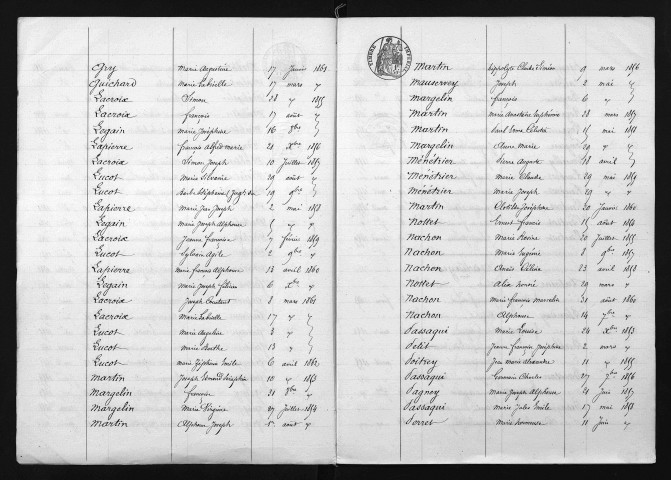 Gry Marie Augustine 17 Janvier 1861
Guichard Marie 17 mars "
Lacroix Simon 28 " 1855
Lacroix françois 17 août "
Legain Marie Joséphine 16 8bre
Lapierre françois Alfred Marie 28 Xbre 1856
Lacroix Simon Joseph 10 Juillet 1857
Lucot Marie 29 août
Lucot 19 9bre
Lapierre Marie Joseph 2 mai 1858
Legain Marie Joseph Alphonse 5 " "
Lacroix Jeanne françoise 7 février 1859
Lucot Sylvain 2 9bre "
Lapierre Marie francis Alphonse 12 avril 1860
Legain Marie Joseph 6 Xbre "
Lacroix Joseph Constant 8 mars 1861
Lacroix Marie 17 " "
Lucot Marie Angeline 2 "
Lucot Marie Berthe 13 "
Lucot Marie Emile 6 avril 1862
Martin Joseph 10 " 1853
Margelin francoise 21 8bre "
Margelin Marie Virginie 27 Juillet 1854
Martin Alphonse Joseph 1er août "
TIMBRE IMPERIAL
Martin hippolyte Claude Simon 9 mars 1856
Mauservey Joseph 2 mai "
Margelin françois 6 " "
Martin Marie Anastasie 28 mars 1857
Martin Paul 15 mai 1858
Margelin Anne Marie 29 " "
Ménétrier Pierre Auguste 18 avril
Ménétrier Marie Claude 29 mai 1859
Ménétrier Marie Joseph 19 " "
Martin Clotilde Joséphine 30 Janvier 1860
Nottet Ernest francois 15 août 1854
Nachon Marie 20 Juillet 1855
Nachon Marie Eugénie 8 9bre 1857
Nachon Anaïs 23 avril 1858
Nottet Alix 29 mars "
Nachon Marie françois Marcelin 31 août 1860
Nachon Alphonse 14 7bre "
Passaqui Marie Louise 24 Xbre 1853
Petit Jeanne françoise Joséphine 2 mars "
Poitrey Jean Marie Alexandre 11 " 1855
Passaqui Germain Charles 27 7bre 1856
Pagney Marie Joseph Alphonse 21 Juin 1857
Passaqui Marie Jules Emile 17 mai 1858
Perret Marie 11 Juin "